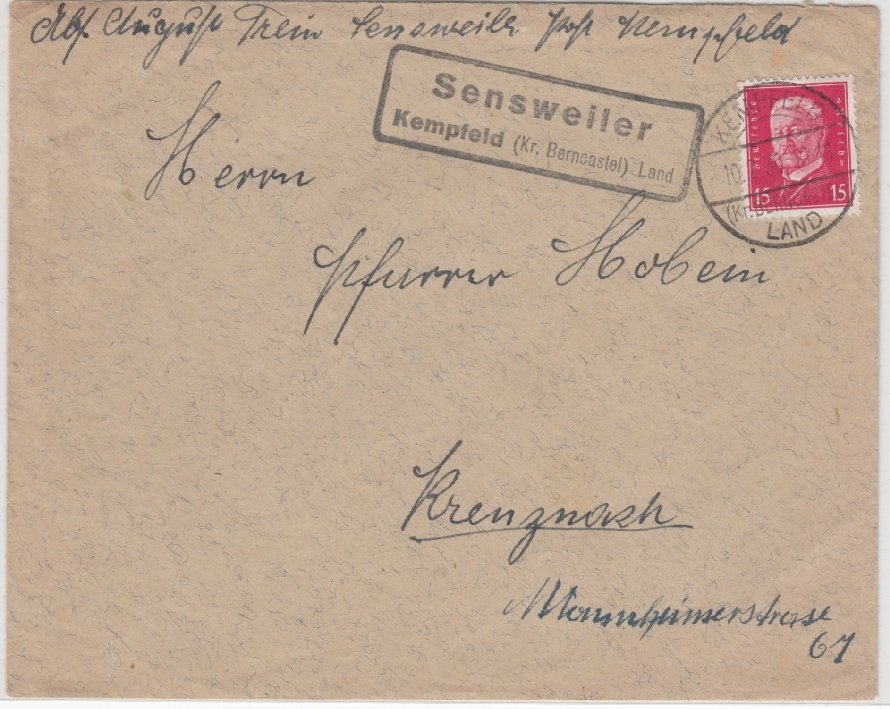 Abs. August Trein Sensweiler Post Kempfeld
Sensweiler
Kempfeld (Kr. Berncastel) Land
Deutsches Reich
15 15
10.
(Kr.
LAND
Herrn
Pfarrer Hobein
Kreuznach
Mannheimerstrase
67